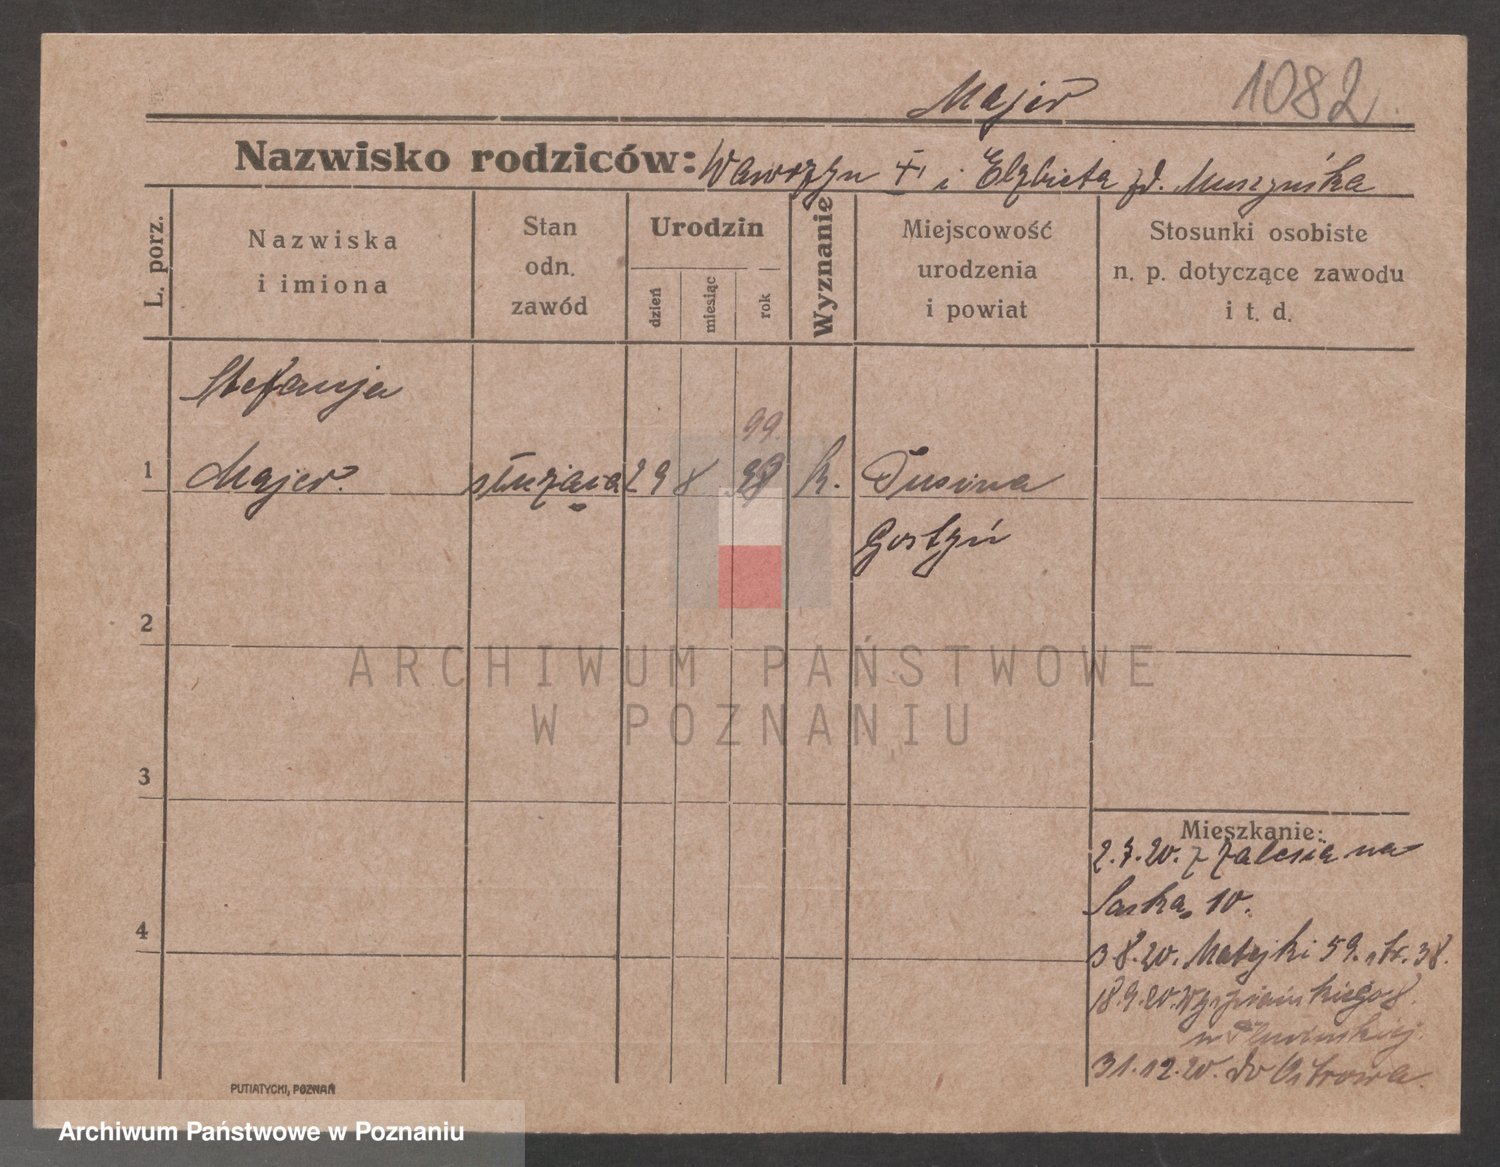 Majer 1082
Nazwisko rodziców: Wawrzyn + i Elzbieta zd. Muszyńska
L. porz.
Nazwiska
i imiona
Stan
odn.
zawód
Urodzin
dzień
miesiąc
rok
Wyznanie
Miejscowość
urodzenia
i powiat
Stosunki osobiste
n. p. dotyczące zawodu
i t. d.
Stefanja
99.
1 Majer. służąca 29 8 98 k. Tusina
Gostyń
2
ARCHIWUM PAŃSTWOWE
W POZNANIU
3
Mieszkanie:
2.7.20. z Zalesia na
Saska 10.
4
3 8.20. Matejki 59. str. 38.
18.9.20. Wyspiańskiego 8.
u
31.12.20. do Ostrowa.
PUTIATYCKI, POZNAŃ
Archiwum Państwowe w Poznaniu